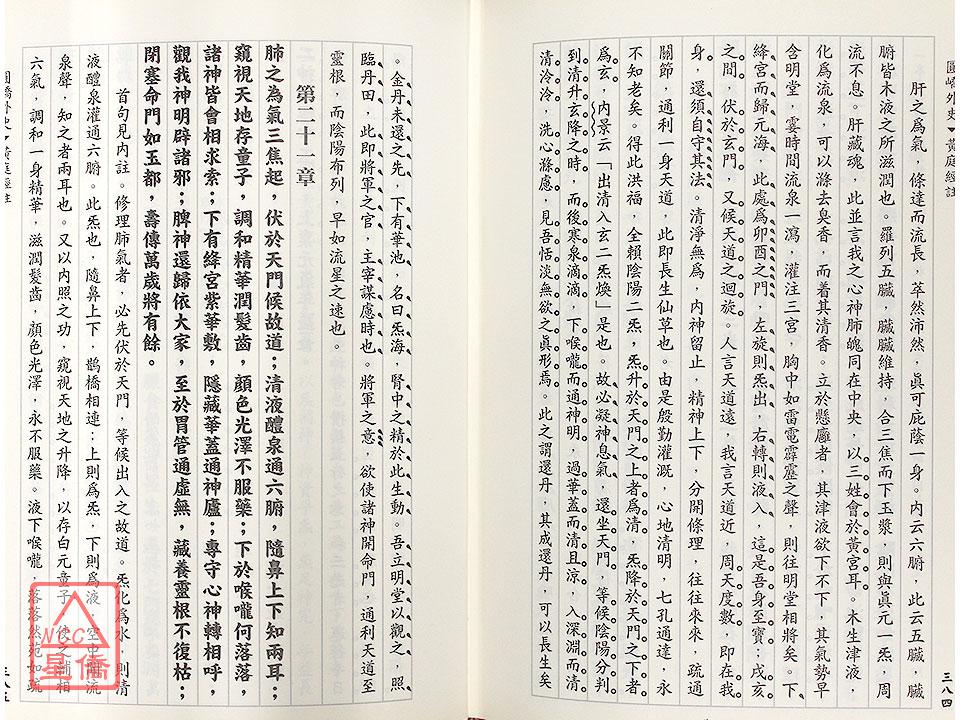 圓嶠外史▼黃庭經註
三八四
肝之為氣，條達而流長，萃然沛然，眞可庇蔭一身。內云六腑，此云五臟，臟
腑皆木液之所滋潤也。羅列五臟，臟臟維持，合三焦而下玉漿，則與眞元一炁，周
流不息。肝藏魂，此並言我之心神肺魄同在中央，以三姓會於黃宮耳。木生津液，
化為流泉，可以滌去臭香，而着其清香。立於懸廱者，其津液欲下不下，其氣勢早
含明堂，霎時間流泉一瀉，灌注三宮，胸中如雷電霹靂之聲，則往明堂相將矣。下
絳宮而歸元海，此處為卯酉之門，左旋則炁出，右轉則液入，這是吾身至寶；戌亥
之間，伏於玄門，又候天道之迴旋。人言天道遠，我言天道近，周天度數，即在我
身，還須自守其法。清淨無為，內神留止，精神上下，分開條理，往往來來，疏通
關節，通利一身天道，此即長生仙草也。由是殷勤灌溉，心地清明，七孔通達，永
不知老矣。得此洪福，全賴陰陽二炁，炁升於天門之上者為清，炁降於天門之下者
為玄，內景云「出清入玄二炁煥」是也。故必凝神息氣，還坐天門，等候陰陽分判
到清升玄降之時，而後寒泉滴滴，下喉嚨而通神明，過華蓋而清且涼，入深淵而清
清泠泠，洗心滌慮，見吾恬淡無欲之眞形焉。此之謂還丹，其成還丹，可以長生矣
。金丹未還之先，下有華池，名曰炁海，腎中之精於此生動。吾立明堂以觀之，照
臨丹田，此即將軍之官，主宰謀慮時也。將軍之意，欲使諸神開命門，通利天道至
靈根，而陰陽布列，早如流星之速也。
第二十一章
肺之為氣三焦起，伏於天門候故道；清液醴泉通六腑，隨鼻上下知兩耳；
窺視天地存童子，調和精華潤髮齒，顏色光澤不服藥；下於喉嚨何落落，
諸神皆會相求索；下有絳宮紫華敷，隱藏華蓋通神廬；專守心神轉相呼，
觀我神明辟諸邪；脾神還歸依大家，至於胃管通虛無，藏養靈根不復枯；
閉塞命門如玉都，壽傳萬歲將有餘。
首句見內註。修理肺氣者，必先伏於天門，等候出入之故道。炁化為水，則清
液醴泉灌通六腑。此炁也，隨鼻上下，鵲橋相連；上則為炁，下則為液，空中聞流
泉聲，知之者兩耳也。又以內照之功，窺視天地之升降，以存白元童子，使之輔相
六氣，調和一身精華，滋潤髮齒，顏色光澤，永不服藥。液下喉嚨，落落然宛如疏
圓嶠外史▼黃庭經註
三八五
NCC
星僑